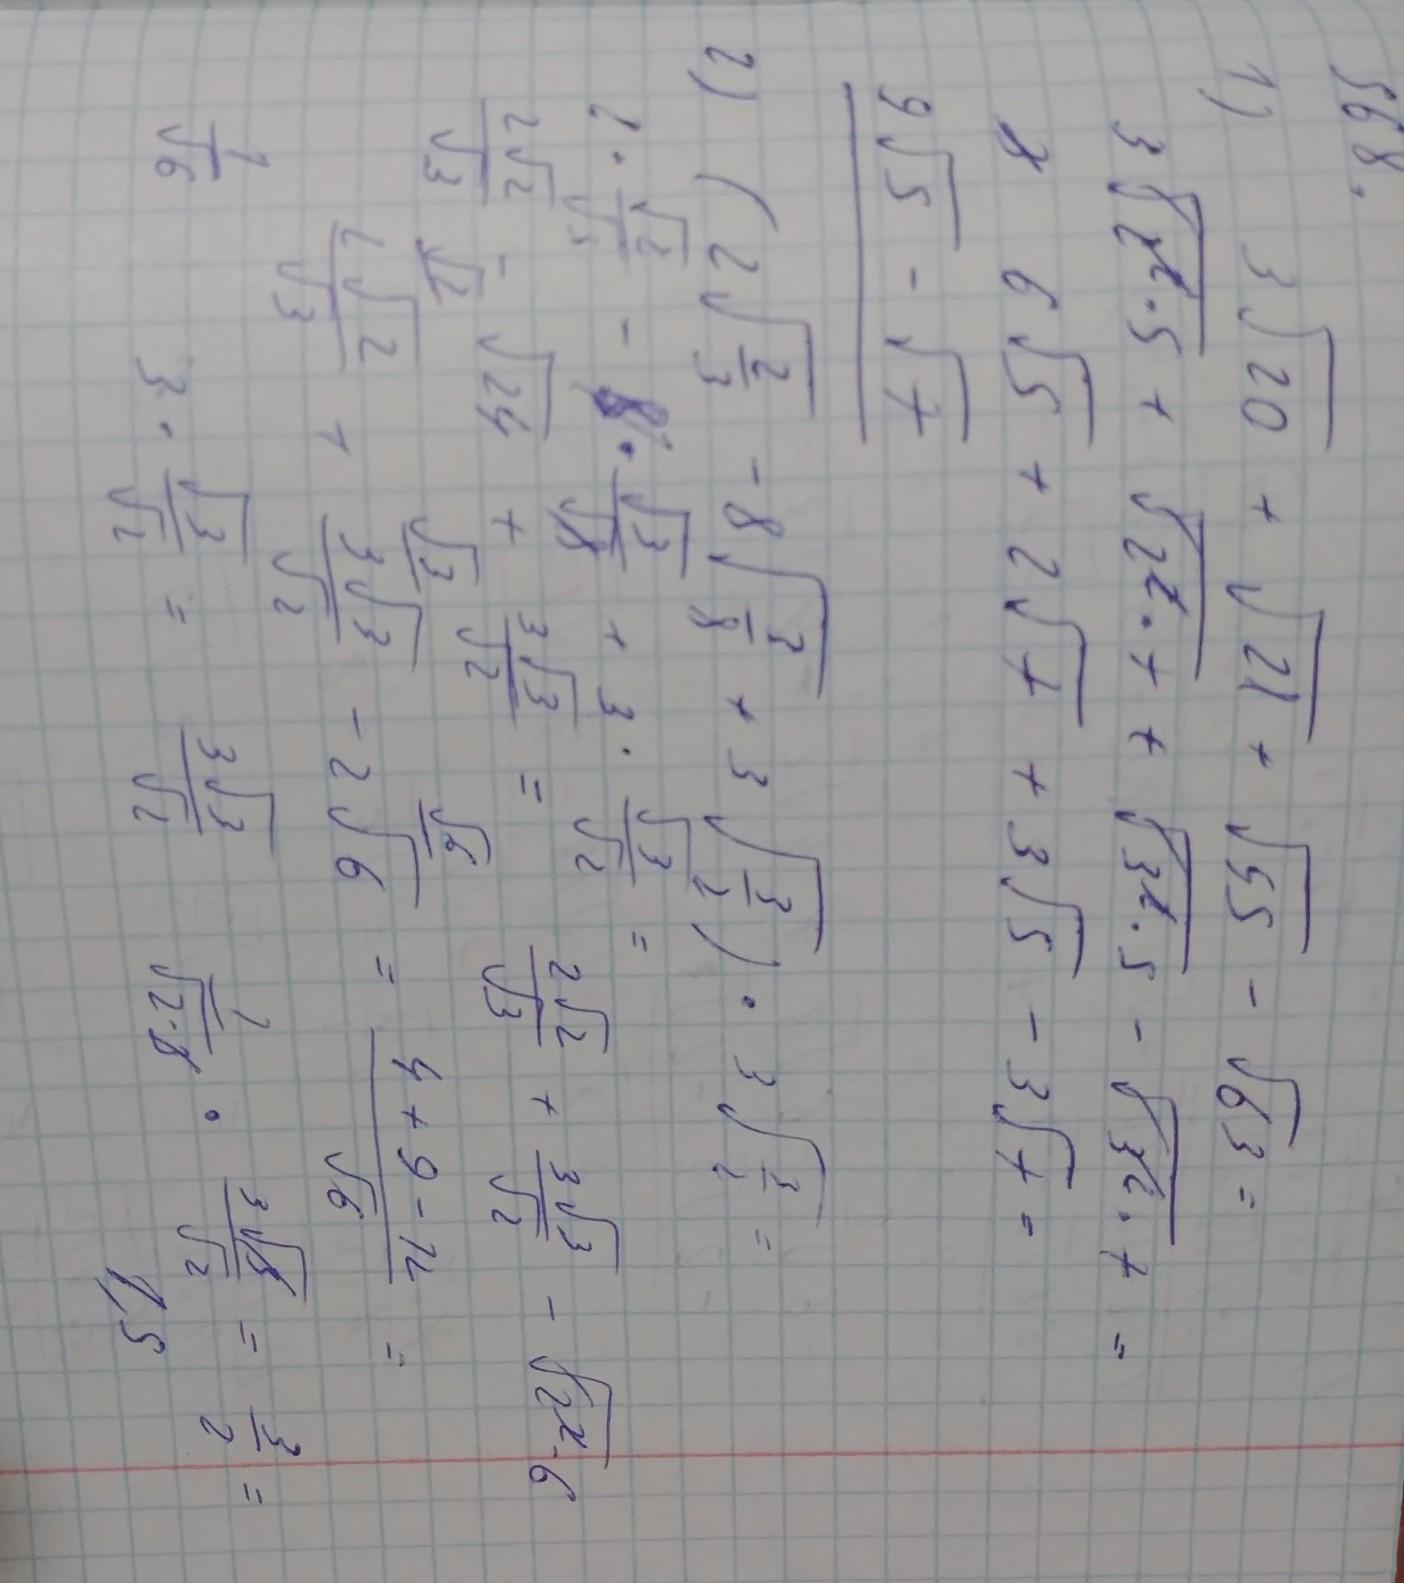 568.
1) 3√20 + √21 + √45 - √63 =
3√2².5 + √2².7 + √3².5 - √3².7 =
6√5 + 2√7 + 3√5 - 3√7 =
9√5 - √7
2) (2√2/3 - 8√3/8 + 3√3/2) . 3√3/2 =
2 . √2/√3 - 8 . √3/√8 + 3 . √3/√2 =
2√2/√3 - √24 + 3√3/√2 = 2√2/√3 + 3√3/√2 - √2².6
√2 √3 √6
2√2/√3 + 3√3/√2 - 2√6 = 4 + 9 - 12/√6 =
1/√6 3 . √3/√2 = 3√3/√2 1/√2.3 . 3√3/√2 = 3/2 =
1,5